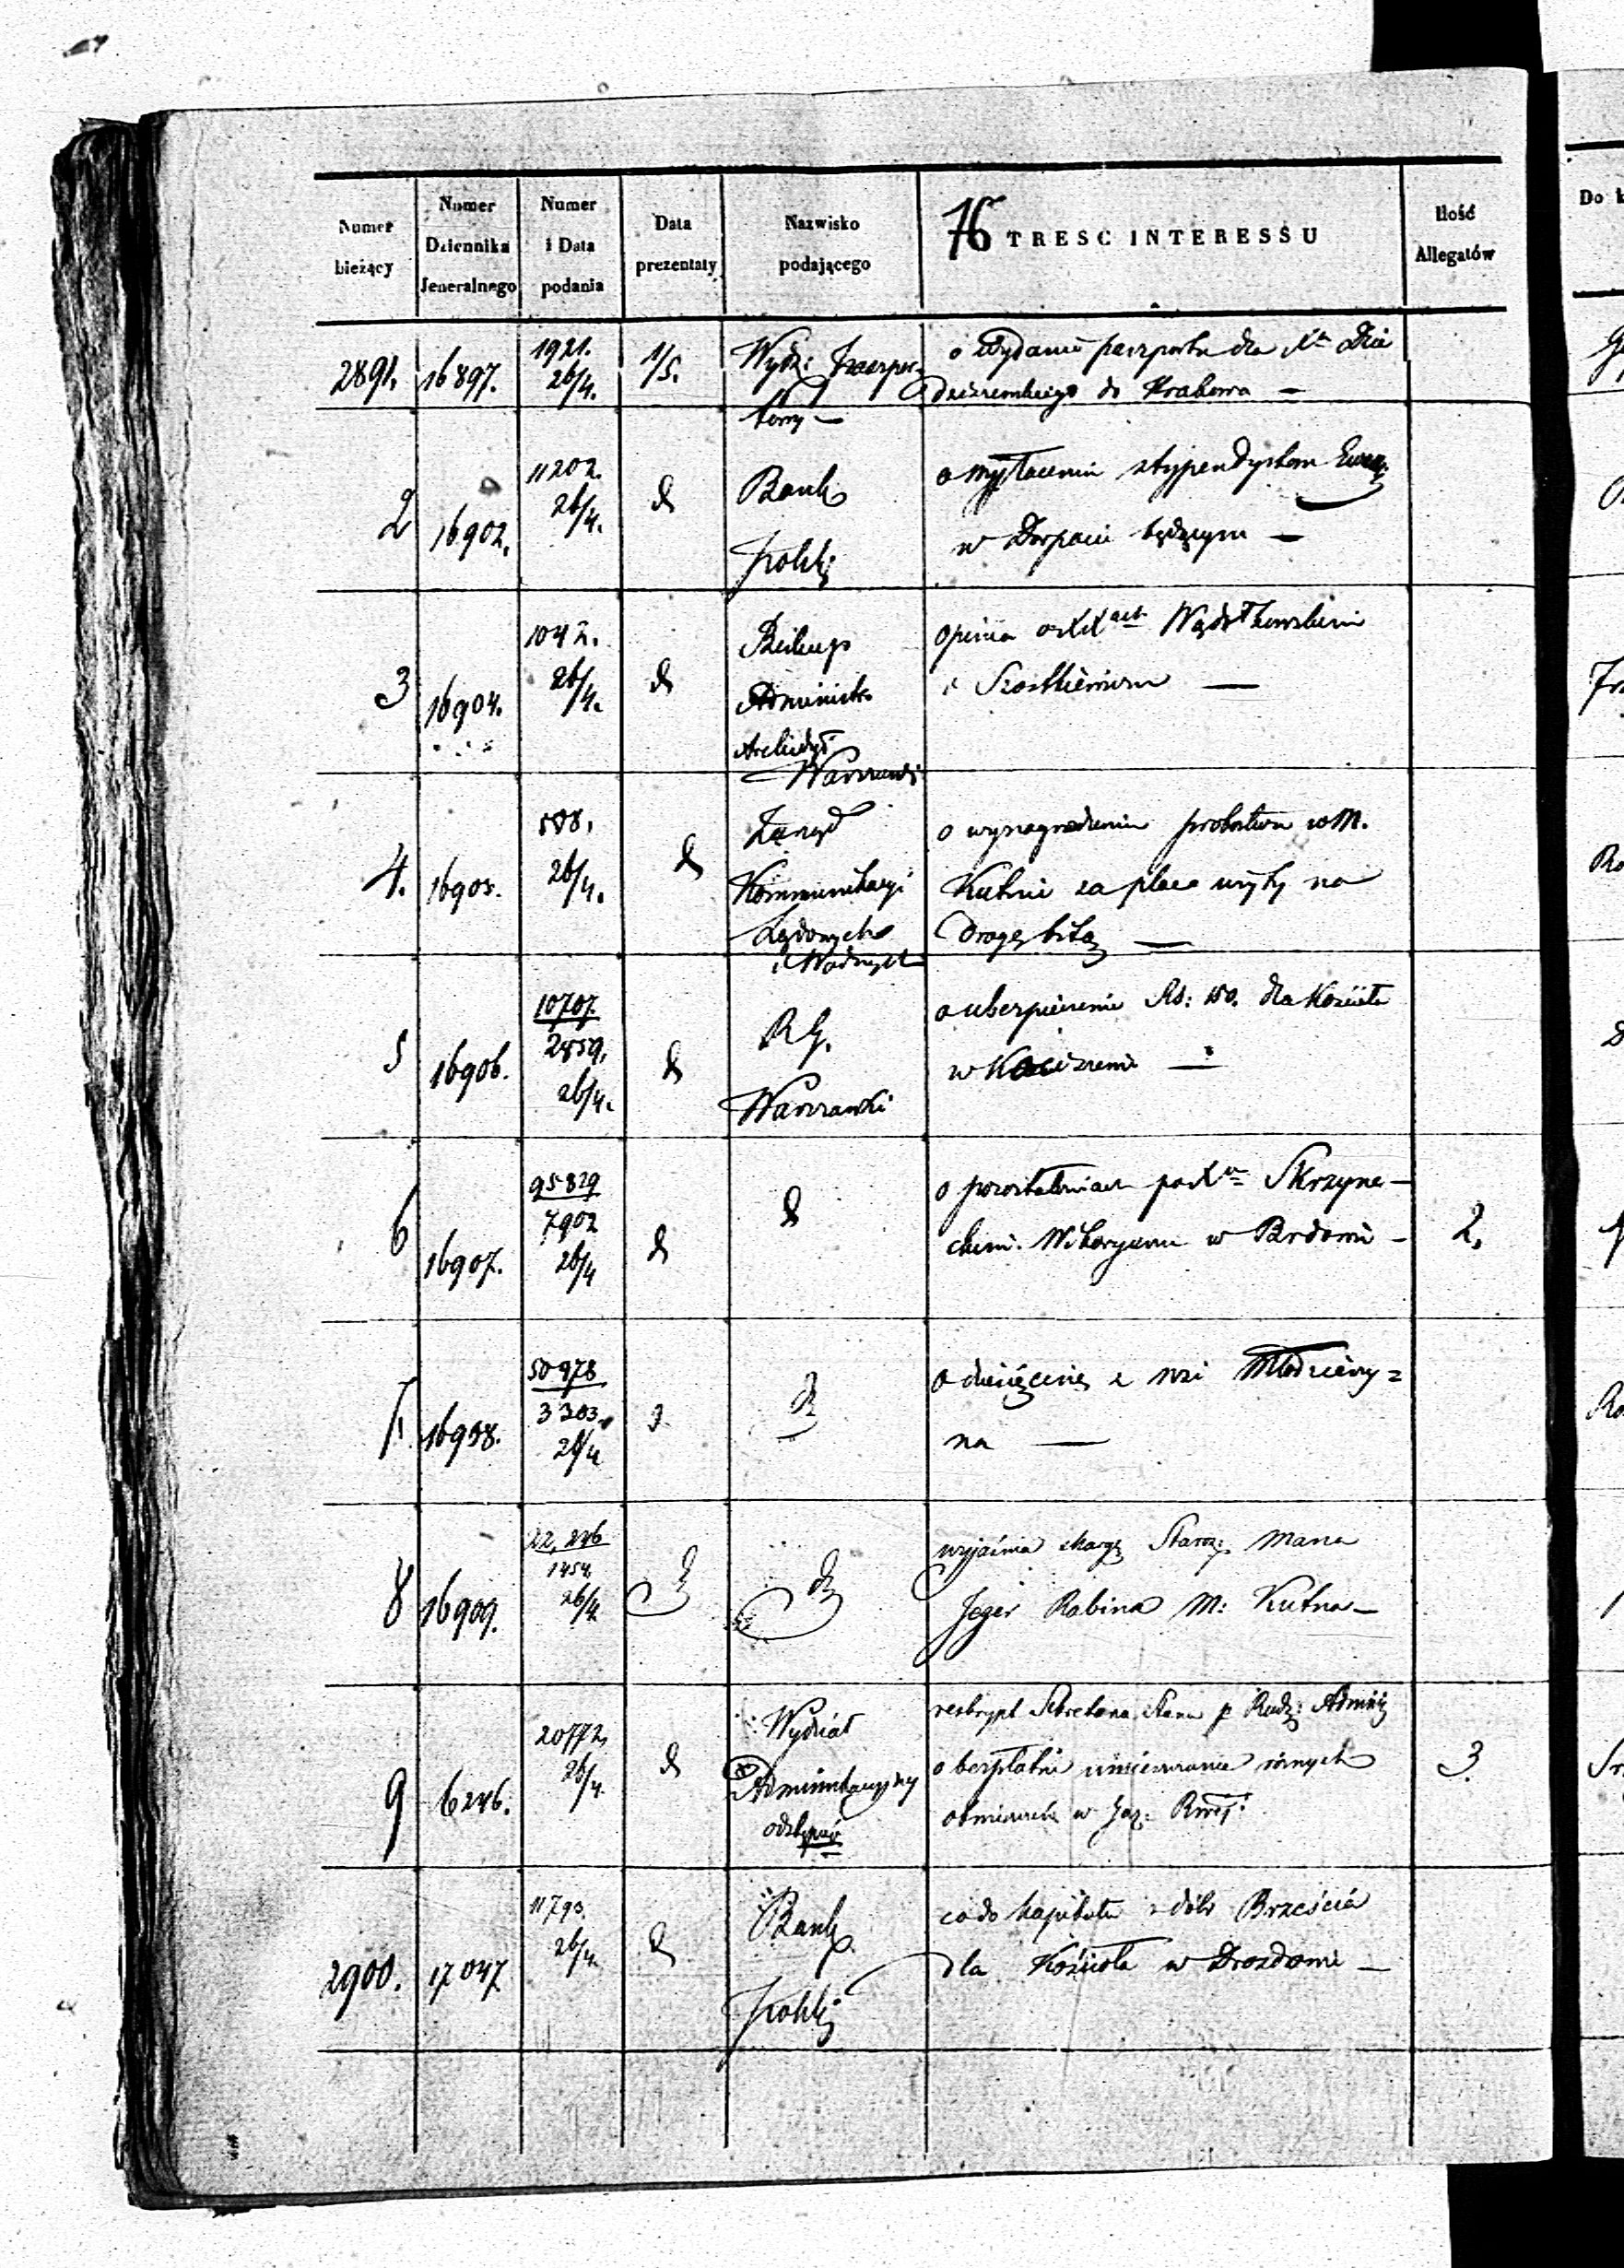 76
Numer bieżący
Numer Dziennika Jeneralnego
Numer i Data podania
Data prezentaty
Nazwisko podającego
TRESC INTERESSU
Ilość Allegatów
Do k
2891. 16897. 1921. 26/4. 1/5. Wydz: Paszpor- o wydanie paszportu dla Xa
towy — do Krakowa —
2 16902. 11202. 26/4. d
Bank o wypłacenie stypendystom
Polski w Dorpacie będącym —
3 16904. 1042. 26/4. d
Biskup opinia o
Administr i
Archidyec
Warszaws
4. 16905. 588. 26/4. d
Zarząd o wynagrodzenie probostwa w M.
Kommunikacyi Kutnie za place użyty na
Lądowych drogę bitą —
i Wodnych
5 16906. 10707. 2859. 26/4. d
R G. o ubezpieczenie Rs: 150. dla Kościoła
Warszawski w —
6 16907. 95829 7902 26/4 d d
o pozostałościach po Xu Skrzyne-
ckim Wikaryuszu w Brdowie — 2.
7. 16908. 50978 3303. 26/4 d d
o dziesięcinę z wsi Młodzieszy=
na —
8 16909. 22,246 1454. 26/4. d d
wyjaśnia skargę Staroz: Mana
Jeger Rabina M: Kutna —
9 6246. 20772. 26/4. d
Wydział reskrypt Sekretarza Stanu p Radz: Admin
Administracyjny o bezpłatne umieszczanie różnych 3.
odstąpić obwieszczeń w Gaz: Rząd:
2900. 17047 11793. 26/4. d
Bank co do kapitału z dóbr Brześcia
Polski dla Kościoła w Drozdowie —